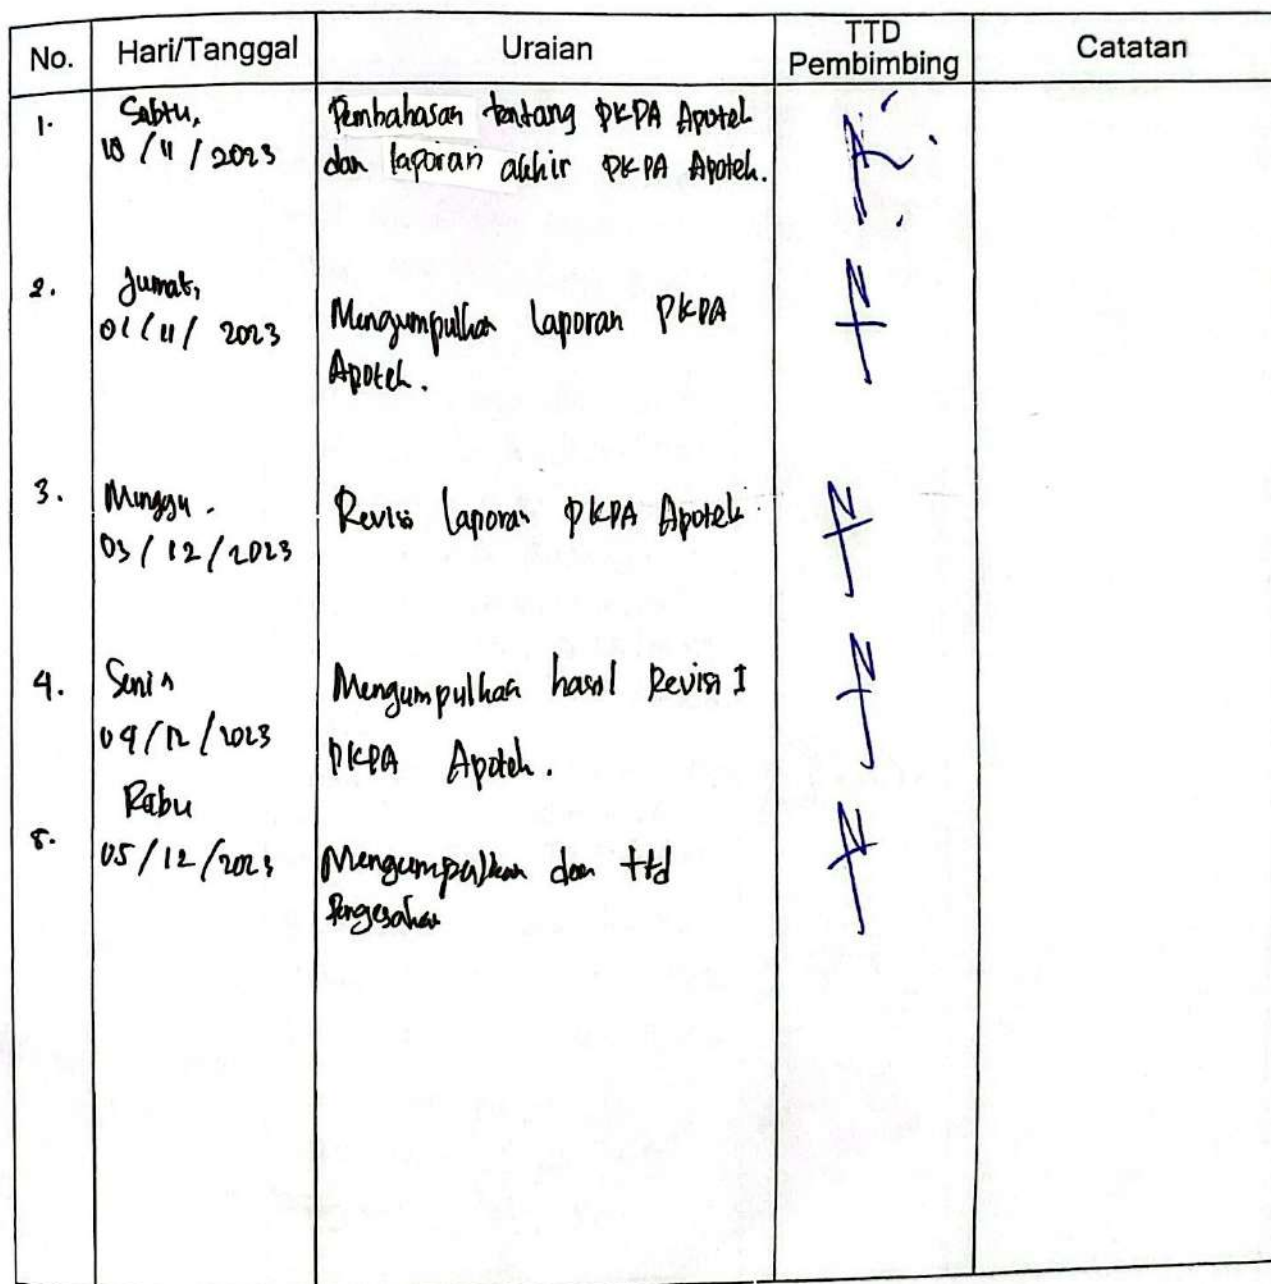 No. Hari/Tanggal Uraian TTD Pembimbing Catatan
1. Sabtu, Pembahasan tentang PKPA Apotek
18 / 11 / 2023 dan laporan akhir PKPA Apotek.
2. Jumat,
01/11/ 2023 Mengumpulkan laporan PKPA
Apotek.
3. Minggu. Revisi laporan PKPA Apotek
03/12/2023
4. Senin Mengumpulkan hasil Revisi I
04/12/2023 PKPA Apotek.
Rabu
5. 05/12/2023 Mengumpulkan dan ttd
Pengesahan